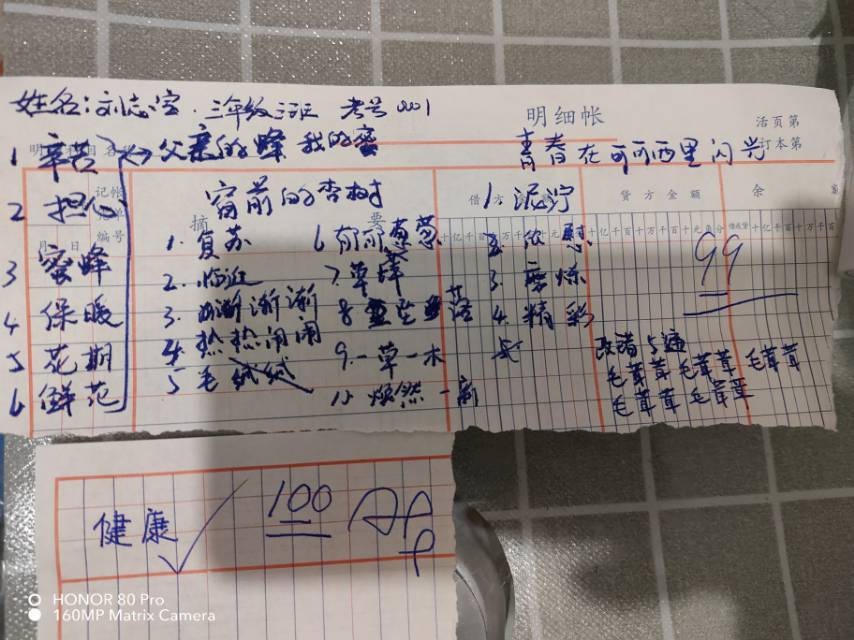 姓名：刘志宇 三年级三班 考号001
明细帐
活页第
订本第
1 辛苦 父亲的蜂 我的蜜
青春在可可西里闪光
2 担心
窗前的杏树
记帐
编号
摘
要
借方
贷方金额
余
3 蜜蜂
4 保暖
5 花期
6 鲜花
1. 复苏
2. 临近
3. 渐渐
4. 热热闹闹
5 毛绒绒
6 郁郁葱葱
7. 草葉
9. 一草一木
10 焕然一新
1. 泥泞
2. 欣慰
3. 磨炼
4. 精彩
99
改错5遍
毛茸茸 毛茸茸 毛茸茸
毛茸茸 毛茸茸
健康 100
HONOR 80 Pro
160MP Matrix Camera